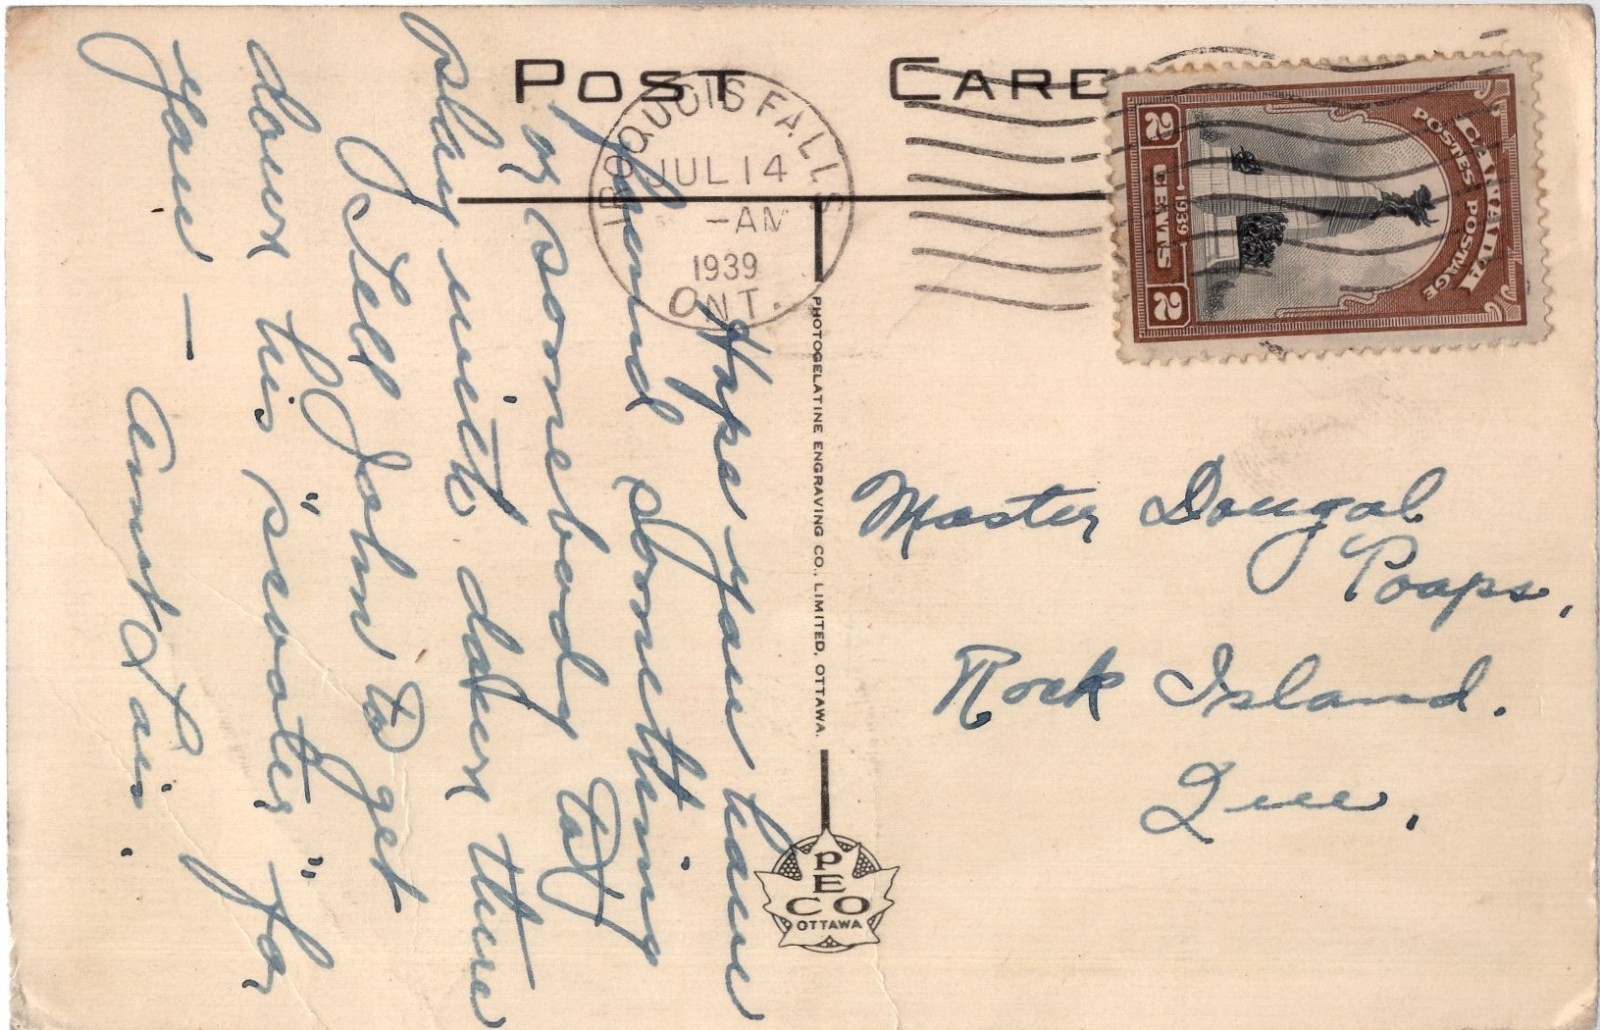 POST CARD
IROQUOIS FALLS
JUL 14
-AM
1939
ONT.
CANADA
POSTES POSTAGE
2 CENTS 2
1939
Hope you have
found something
or somebody to
play with down there
Tell John to get
down his "scooter" for
you —
Aunt
PHOTOGELATINE ENGRAVING CO., LIMITED, OTTAWA.
PECO
OTTAWA
Master Dougal
Poaps,
Rock Island.
Que.